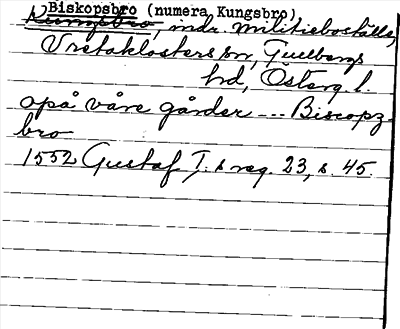 Biskopsbro (numera Kungsbro)
Kungsbro, indr. militieboställe,
Vretaklosters sn, Gullbergs
hrd, Österg. l.
opå våre gårder --- Biscopz
bro
1552 Gustaf I:s reg. 23, s. 45.